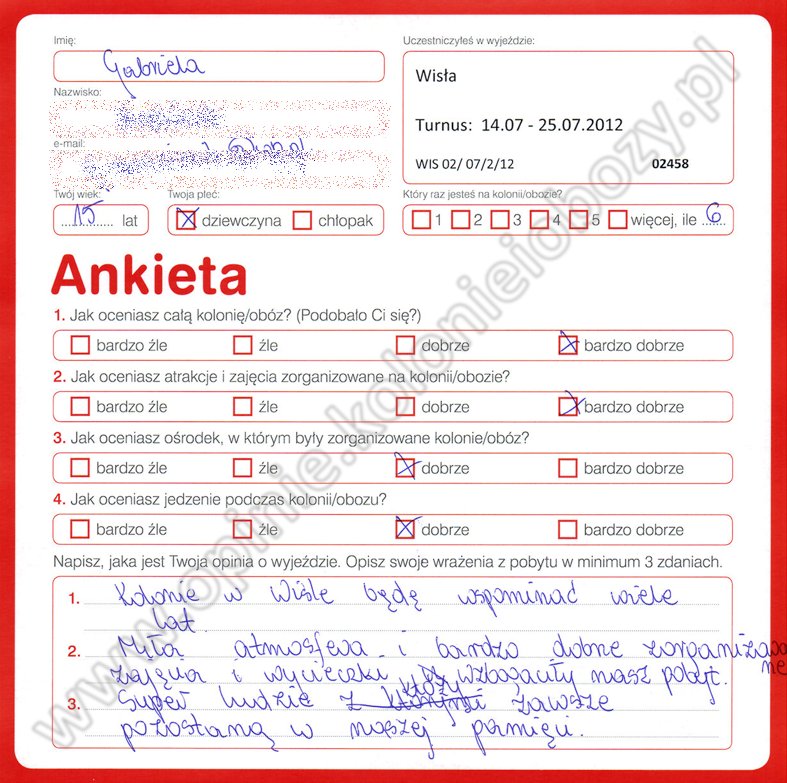 Imię:
Gabriela
Uczestniczyłeś w wyjeździe:
Wisła
Nazwisko:
Turnus: 14.07 - 25.07.2012
e-mail:
WIS 02/ 07/2/12 02458
Twój wiek:
15 lat
Twoja płeć:
dziewczyna chłopak
Który raz jesteś na kolonii/obozie?
1 2 3 4 5 więcej, ile 6
Ankieta
1. Jak oceniasz całą kolonię/obóz? (Podobało Ci się?)
bardzo źle źle dobrze bardzo dobrze
2. Jak oceniasz atrakcje i zajęcia zorganizowane na kolonii/obozie?
bardzo źle źle dobrze bardzo dobrze
3. Jak oceniasz ośrodek, w którym były zorganizowane kolonie/obóz?
bardzo źle źle dobrze bardzo dobrze
4. Jak oceniasz jedzenie podczas kolonii/obozu?
bardzo źle źle dobrze bardzo dobrze
Napisz, jaka jest Twoja opinia o wyjeździe. Opisz swoje wrażenia z pobytu w minimum 3 zdaniach.
1. Kolonie w Wiśle będę wspominać wiele
lat.
2. Miła atmosfera i bardzo dobrze zorganizowane
zajęcia i wycieczki wzbogaciły nasz pobyt.
3. Super ludzie którzy zawsze
pozostaną w naszej pamięci.
www.opinie.kolonieiobozy.pl